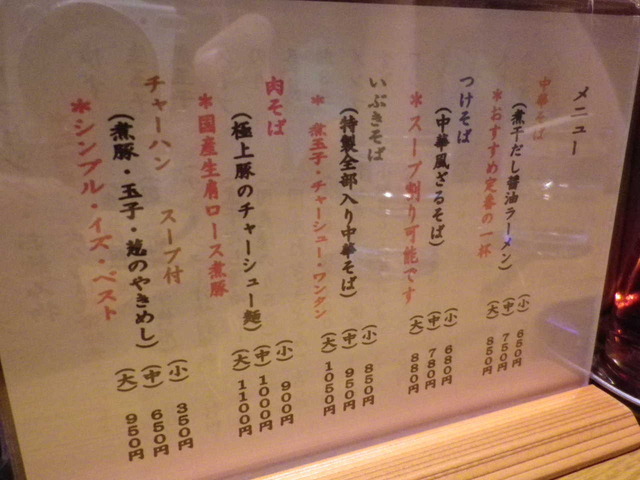 メニュー
中華そば
(煮干だし醤油ラーメン)
*おすすめ定番の一杯
(小) 650円
(中) 750円
(大) 850円
つけそば
(中華風ざるそば)
*スープ割り可能です
(小) 680円
(中) 780円
(大) 880円
いぶきそば
(特製全部入り中華そば)
*煮玉子・チャーシュー・ワンタン
(小) 850円
(中) 950円
(大) 1050円
肉そば
(極上豚のチャーシュー麺)
*国産生肩ロース煮豚
(小) 900円
(中) 1000円
(大) 1100円
チャーハン スープ付
(煮豚・玉子・葱のやきめし)
*シンプル・イズ・ベスト
(小) 350円
(中) 650円
(大) 950円